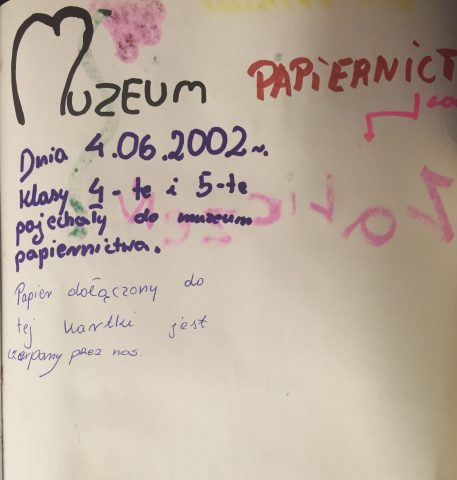 MUZEUM PAPIERNICT
Dnia 4.06.2002r.
klasy 4-te i 5-te
pojechały do muzeum
papiernictwa.
Papier dołączony do
tej kartki jest
czerpany przez nas.